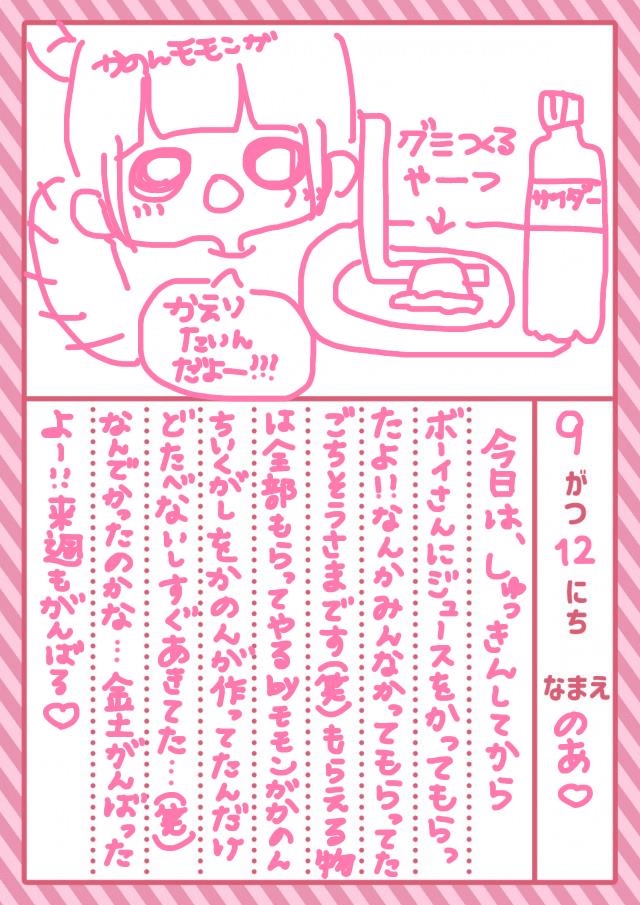 かのんモモンガ
グミつくる
やーつ
サイダー
かえり
たいん
だよー!!!
9がつ12にち
なまえ のあ♡
今日は、しゅっきんしてから
ボーイさんにジュースをかってもらっ
たよ!!なんかみんなかってもらってた
ごちそうさまです(笑)もらえる物
は全部もらってやるbyモモンガかのん
ちいくがしをかのんが作ってたんだけ
どたべないしすぐあきてた…(笑)
なんでかったのかな…金土がんばった
よー!!来週もがんばる♡